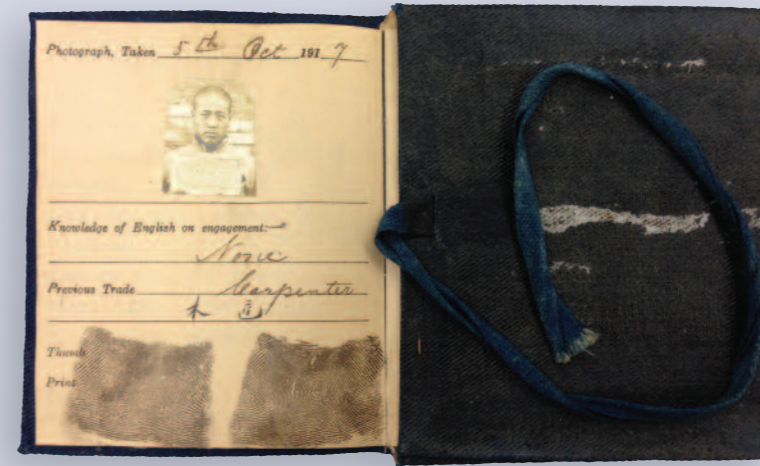 Photograph, Taken 5th Oct 1917
Knowledge of English on engagement:—
None
Previous Trade Carpenter
木 匠
Thumb
Print